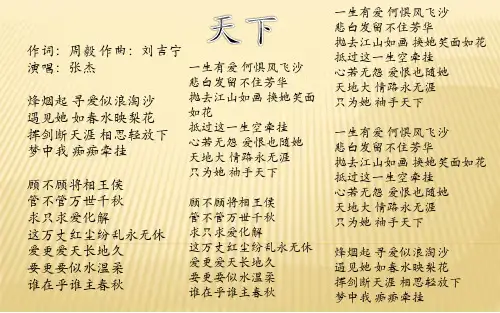 天下
作词：周毅 作曲：刘吉宁
演唱：张杰
烽烟起 寻爱似浪淘沙
遇见她 如春水映梨花
挥剑断天涯 相思轻放下
梦中我 痴痴牵挂
顾不顾将相王侯
管不管万世千秋
求只求爱化解
这万丈红尘纷乱永无休
爱更爱天长地久
要更要似水温柔
谁在乎谁主春秋
一生有爱 何惧风飞沙
悲白发留不住芳华
抛去江山如画 换她笑面
如花
抵过这一生空牵挂
心若无怨 爱恨也随她
天地大 情路永无涯
只为她 袖手天下
顾不顾将相王侯
管不管万世千秋
求只求爱化解
这万丈红尘纷乱永无休
爱更爱天长地久
要更要似水温柔
谁在乎谁主春秋
一生有爱 何惧风飞沙
悲白发留不住芳华
抛去江山如画 换她笑面如花
抵过这一生空牵挂
心若无怨 爱恨也随她
天地大 情路永无涯
只为她 袖手天下
一生有爱 何惧风飞沙
悲白发留不住芳华
抛去江山如画 换她笑面如花
抵过这一生空牵挂
心若无怨 爱恨也随她
天地大 情路永无涯
只为她 袖手天下
烽烟起 寻爱似浪淘沙
遇见她 如春水映梨花
挥剑断天涯 相思轻放下
梦中我 痴痴牵挂